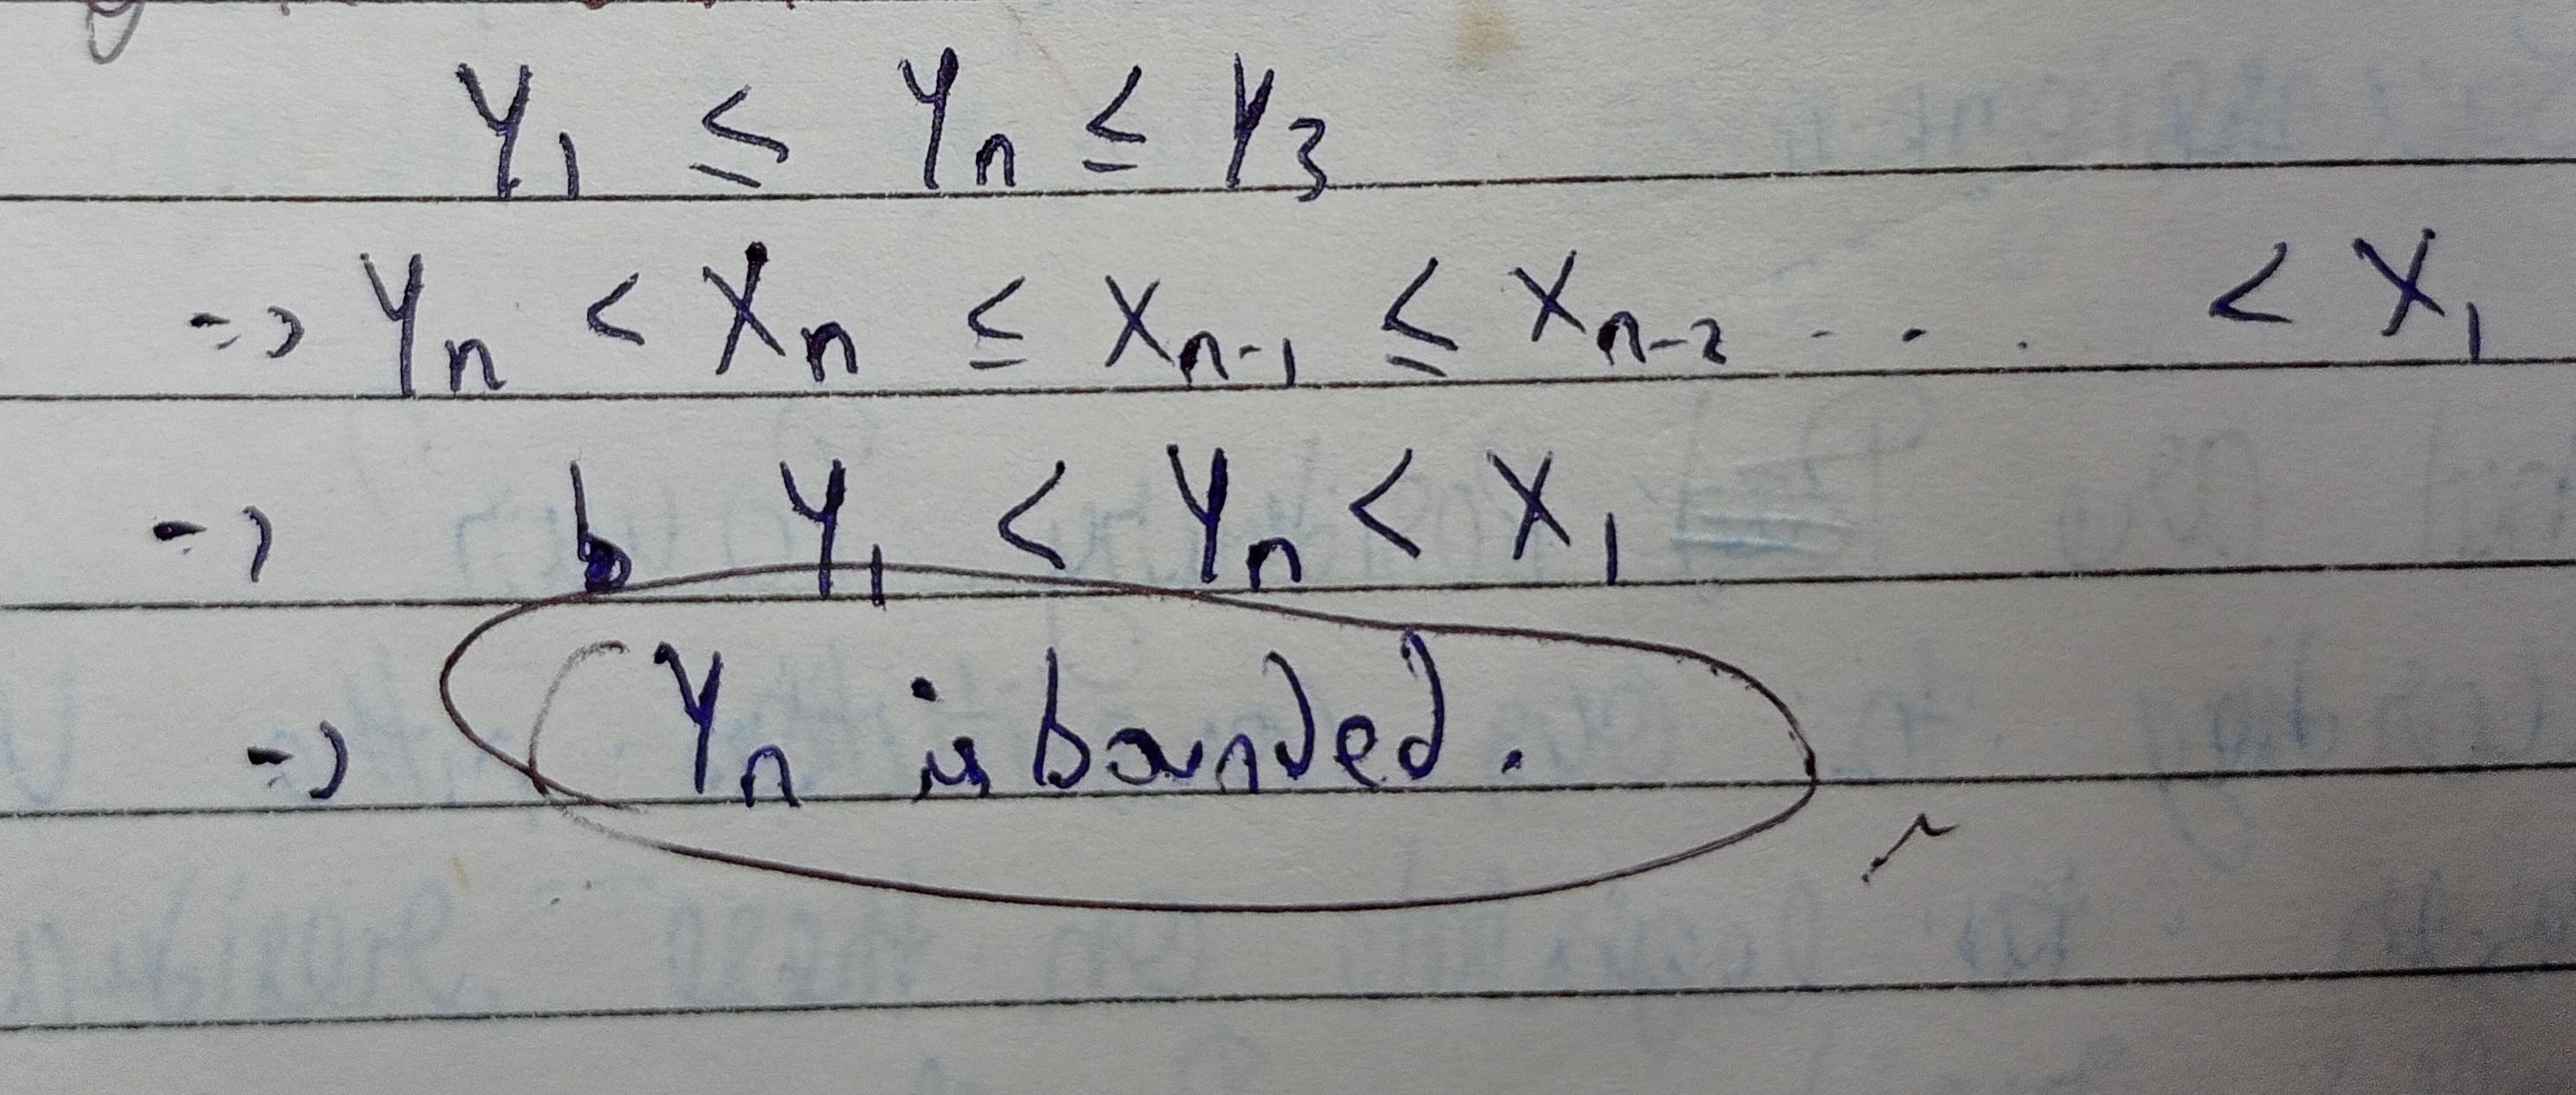 Y₁ ≤ Yₙ ≤ Y₃
=> Yₙ < Xₙ ≤ Xₙ₋₁ ≤ Xₙ₋₂ . . . < X₁
=> b Y₁ < Yₙ < X₁
=> Yₙ is bounded.